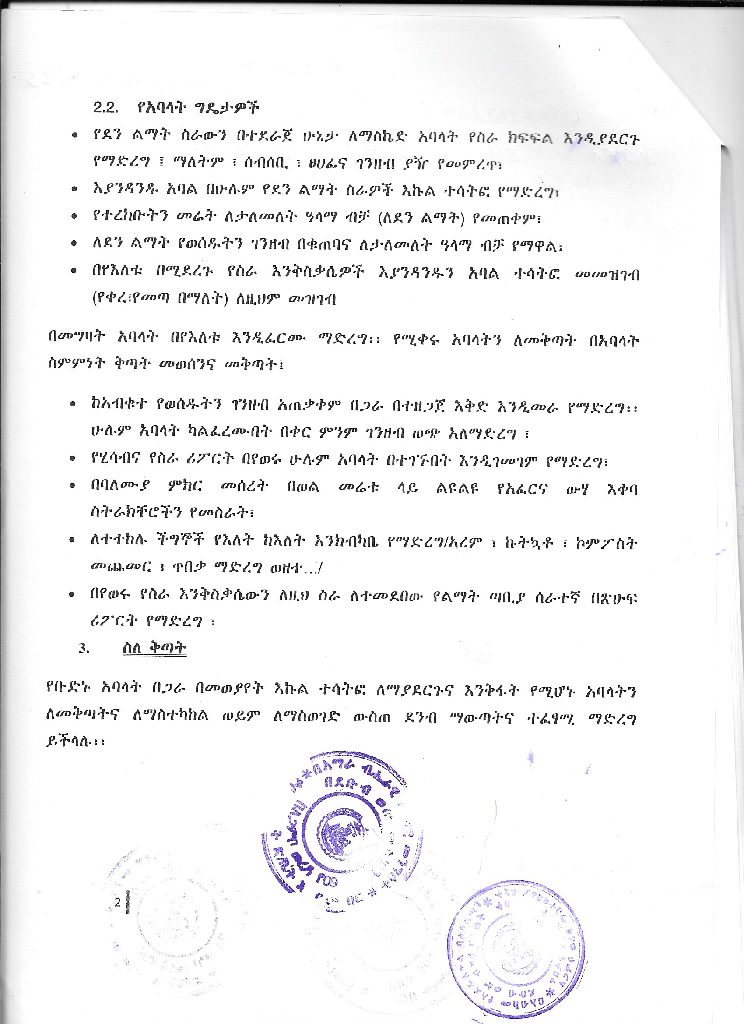 2.2. የአባላት ግዴታዎች
• የደን ልማት ስራውን በተደራጀ ሁኔታ ለማስኬድ አባላት የስራ ክፍፍል እንዲያደርጉ
የማድረግ ፤ ማለትም ፣ ሰብሳቢ ፣ ፀሀፊና ገንዘብ ያዥ የመምረጥ፣
• እያንዳንዱ አባል በሁሉም የደን ልማት ስራዎች እኩል ተሳትፎ የማድረግ፣
• የተረከቡትን መሬት ለታለመለት ዓላማ ብቻ (ለደን ልማት) የመጠቀም፣
• ለደን ልማት የወሰዱትን ገንዘብ በቁጠባና ለታለመለት ዓላማ ብቻ የማዋል፣
• በየእለቱ በሚደረጉ የስራ እንቅስቃሴዎች እያንዳንዱን አባል ተሳትፎ መመዝገብ
(የቀረ፣የመጣ በማለት) ለዚህም መዝገብ
በመግዛት አባላት በየእለቱ እንዲፈርሙ ማድረግ፡፡ የሚቀሩ አባላትን ለመቅጣት በአባላት
ስምምነት ቅጣት መወሰንና መቅጣት፤
• ከአብቁተ የወሰዱትን ገንዘብ አጠቃቀም በጋራ በተዘጋጀ እቅድ እንዲመራ የማድረግ፡፡
ሁሉም አባላት ካልፈረሙበት በቀር ምንም ገንዘብ ወጭ አለማድረግ ፣
• የሂሳብና የስራ ሪፖርት በየወሩ ሁሉም አባላት በተገኙበት እንዲገመገም የማድረግ፣
• በባለሙያ ምክር መሰረት በወል መሬቱ ላይ ልዩልዩ የአፈርና ውሃ እቀባ
ስትራክቸሮችን የመስራት፣
• ለተተከሉ ችግኞች የእለት ከእለት እንክብካቤ የማድረግ/አረም ፣ ኩትኳቶ ፣ ኮምፖስት
መጨመር ፣ ጥበቃ ማድረግ ወዘተ.../
• በየወሩ የስራ እንቅስቃሴውን ለዚህ ስራ ለተመደበው የልማት ጣቢያ ሰራተኛ በጽሁፍ
ሪፖርት የማድረግ ፣
3. ስለ ቅጣት
የቡድኑ አባላት በጋራ በመወያየት እኩል ተሳትፎ ለማያደርጉና እንቅፋት የሚሆኑ አባላትን
ለመቅጣትና ለማስተካከል ወይም ለማስወገድ ውስጠ ደንብ ማውጣትና ተፈፃሚ ማድረግ
ይችላሉ፡፡
2